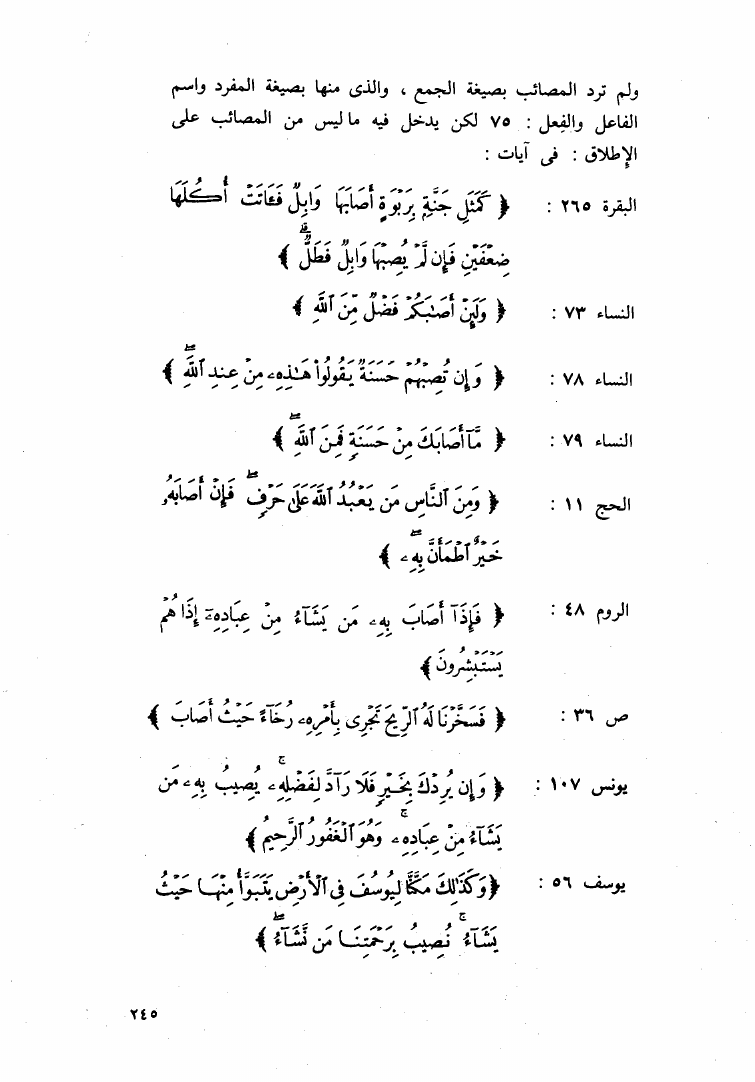 ولم ترد المصائب بصيغة الجمع ، والذى منها بصيغة المفرد واسم
الفاعل والفِعل : ٧٥ لكن يدخل فيه ماليس من المصائب على
الإطلاق : فى آيات :
البقرة ٢٦٥ : ﴿ كَمَثَلِ جَنَّةٍۭ بِرَبْوَةٍ أَصَابَهَا وَابِلٌ فَـَٔاتَتْ أُكُلَهَا
ضِعْفَيْنِ فَإِن لَّمْ يُصِبْهَا وَابِلٌ فَطَلٌّ ۗ ﴾
النساء ٧٣ : ﴿ وَلَئِنْ أَصَٰبَكُمْ فَضْلٌ مِّنَ ٱللَّهِ ﴾
النساء ٧٨ : ﴿ وَإِن تُصِبْهُمْ حَسَنَةٌ يَقُولُوا۟ هَٰذِهِۦ مِنْ عِندِ ٱللَّهِ ۖ ﴾
النساء ٧٩ : ﴿ مَّآ أَصَابَكَ مِنْ حَسَنَةٍ فَمِنَ ٱللَّهِ ۖ ﴾
الحج ١١ : ﴿ وَمِنَ ٱلنَّاسِ مَن يَعْبُدُ ٱللَّهَ عَلَىٰ حَرْفٍ ۖ فَإِنْ أَصَابَهُۥ
خَيْرٌ ٱطْمَأَنَّ بِهِۦ ۖ ﴾
الروم ٤٨ : ﴿ فَإِذَآ أَصَابَ بِهِۦ مَن يَشَآءُ مِنْ عِبَادِهِۦٓ إِذَا هُمْ
يَسْتَبْشِرُونَ ﴾
ص ٣٦ : ﴿ فَسَخَّرْنَا لَهُ ٱلرِّيحَ تَجْرِى بِأَمْرِهِۦ رُخَآءً حَيْثُ أَصَابَ ﴾
يونس ١٠٧ : ﴿ وَإِن يُرِدْكَ بِخَيْرٍ فَلَا رَآدَّ لِفَضْلِهِۦ ۚ يُصِيبُ بِهِۦ مَن
يَشَآءُ مِنْ عِبَادِهِۦ ۚ وَهُوَ ٱلْغَفُورُ ٱلرَّحِيمُ ﴾
يوسف ٥٦ : ﴿ وَكَذَٰلِكَ مَكَّنَّا لِيُوسُفَ فِى ٱلْأَرْضِ يَتَبَوَّأُ مِنْهَا حَيْثُ
يَشَآءُ ۚ نُصِيبُ بِرَحْمَتِنَا مَن نَّشَآءُ ۖ ﴾
٢٤٥